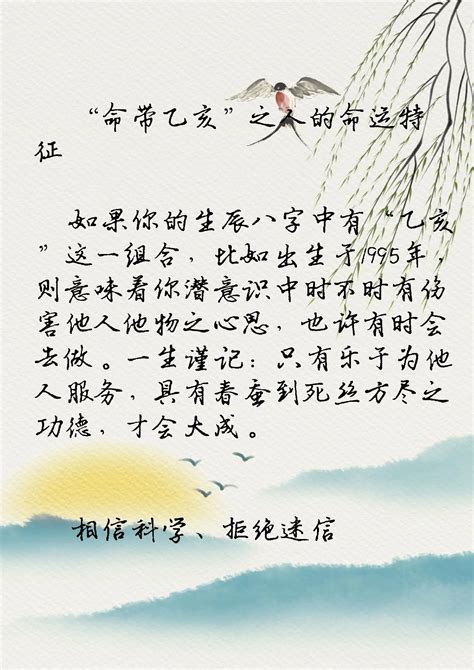 “命带乙亥”之人的命运特
征
如果你的生辰八字中有“乙亥
”这一组合，比如出生于1995年，
则意味着你潜意识中时不时有伤
害他人他物之心思，也许有时会
去做。一生谨记：只有乐于为他
人服务，具有春蚕到死丝方尽之
功德，才会大成。
相信科学、拒绝迷信